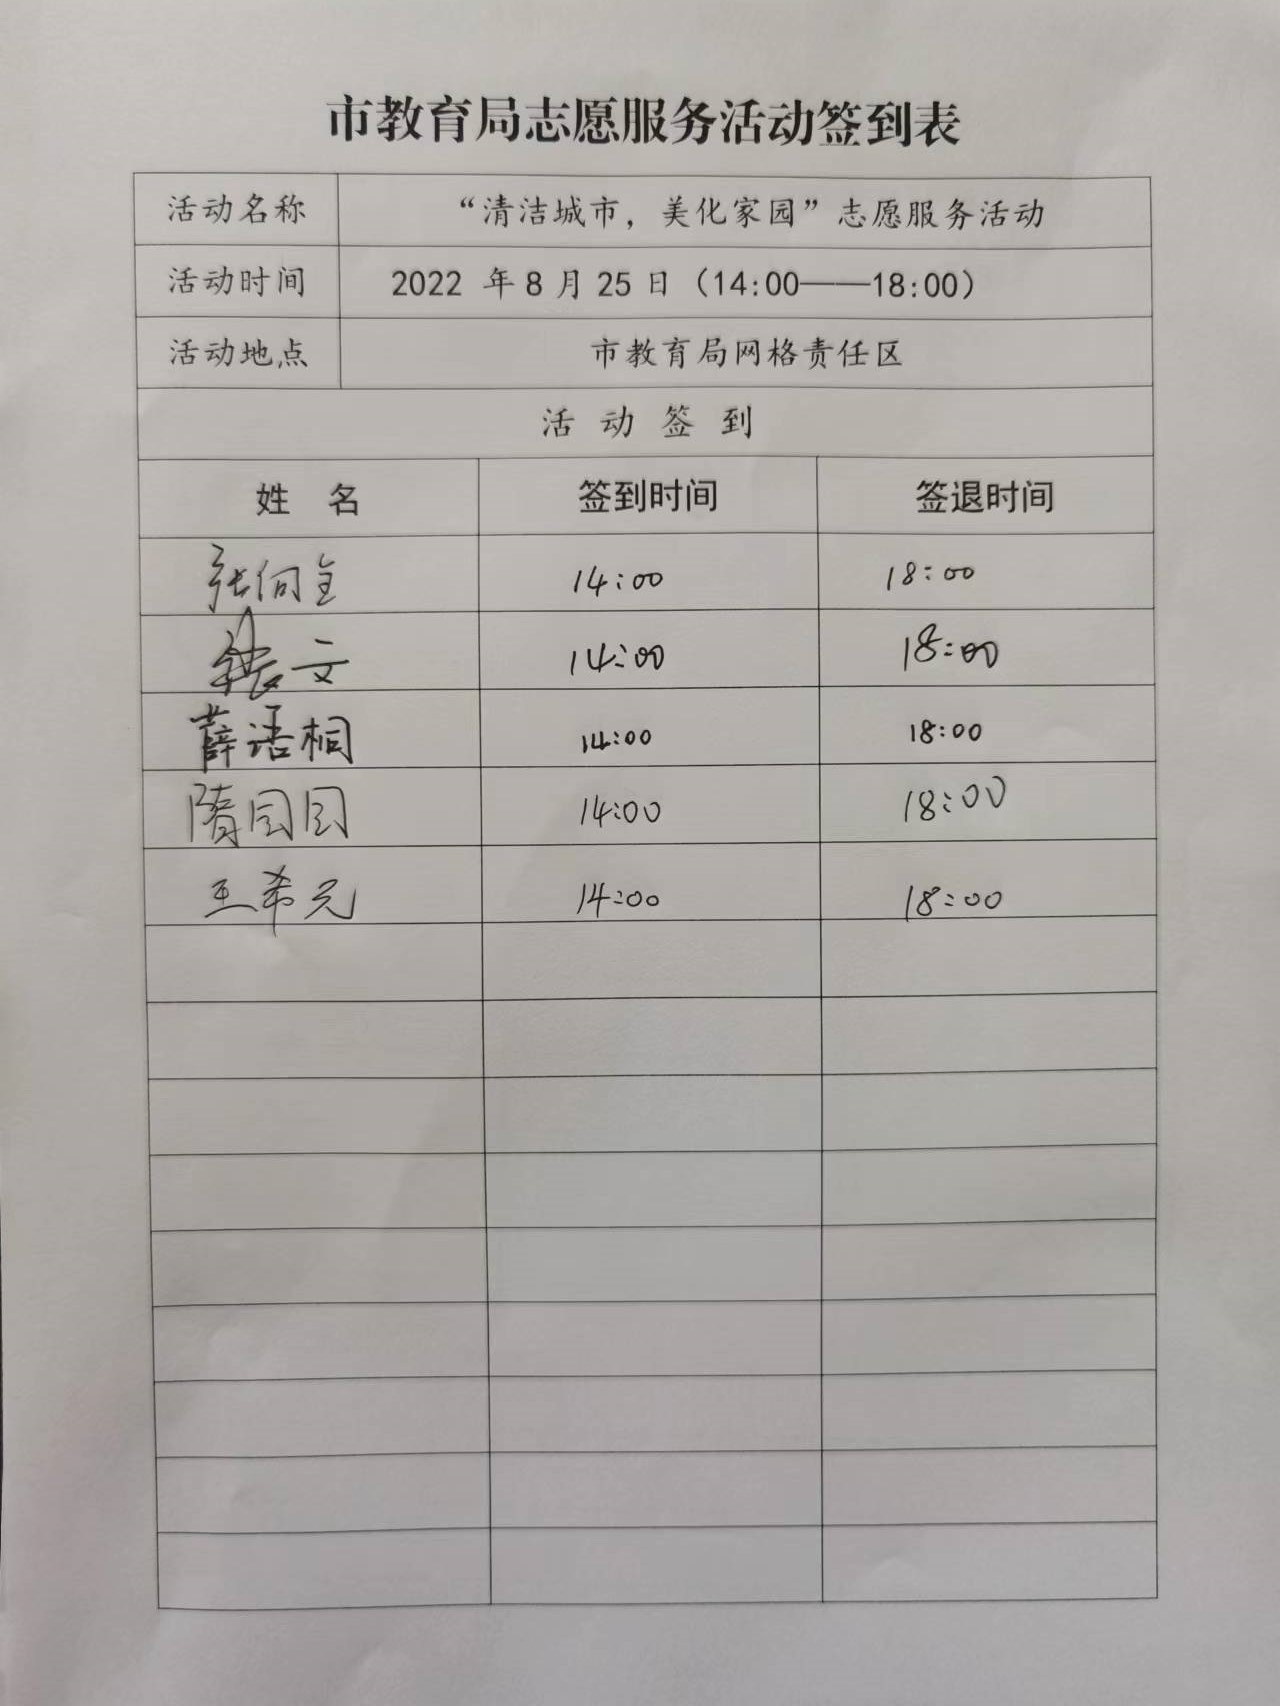 市教育局志愿服务活动签到表
活动名称 “清洁城市，美化家园”志愿服务活动
活动时间 2022 年8月25日（14:00——18:00）
活动地点 市教育局网格责任区
活 动 签 到
姓 名 签到时间 签退时间
张向全 14:00 18:00
文 14:00 18:00
薛语桐 14:00 18:00
隋园园 14:00 18:00
王希元 14:00 18:00